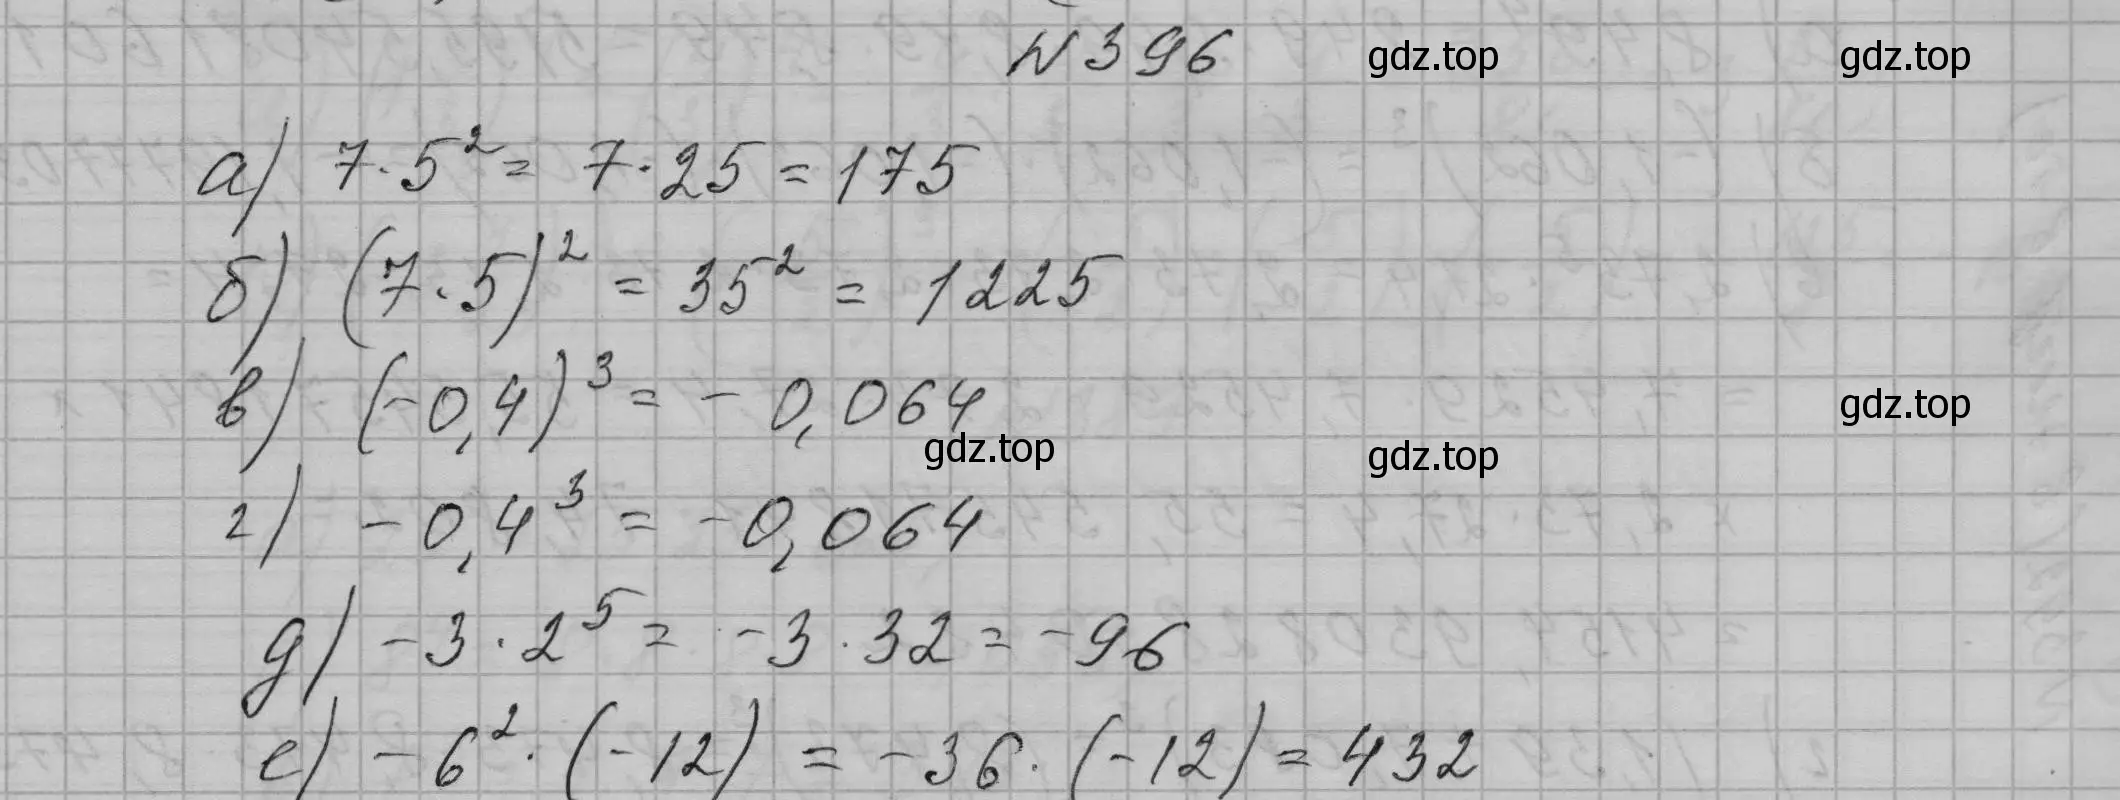 N 396 gdz.top gdz.top
а) 7·5² = 7·25 = 175
б) (7·5)² = 35² = 1225
в) (-0,4)³ = -0,064
gdz.top
gdz.top gdz.top
г) -0,4³ = -0,064
д) -3·2⁵ = -3·32 = -96
е) -6²·(-12) = -36·(-12) = 432